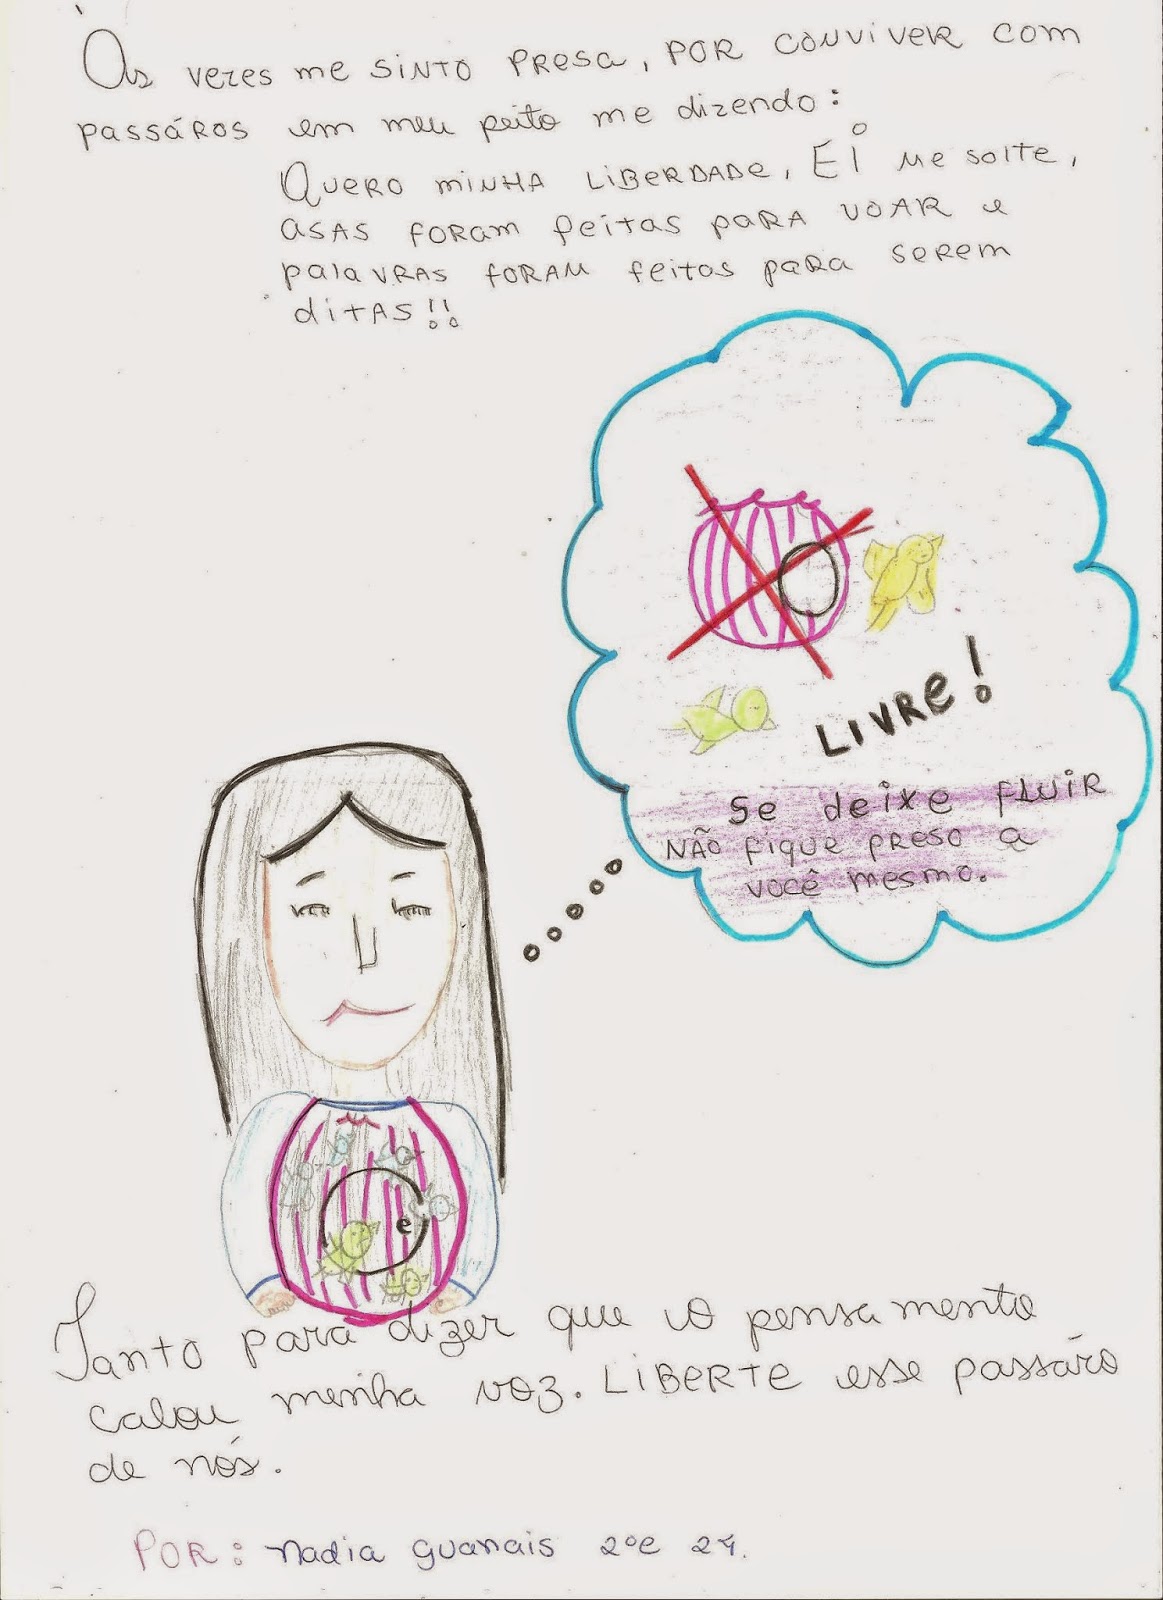 Às vezes me sinto presa, por conviver com
passáros em meu peito me dizendo:
Quero minha liberdade, Ei me solte,
asas foram feitas para voar e
palavras foram feitas para serem
ditas!!
Livre!
Se deixe fluir
não fique preso a
você mesmo.
e
Tanto para dizer que o pensamento
calou minha voz. Liberte esse passáro
de nós.
Por: Nadia Guanais 2ºe 24.